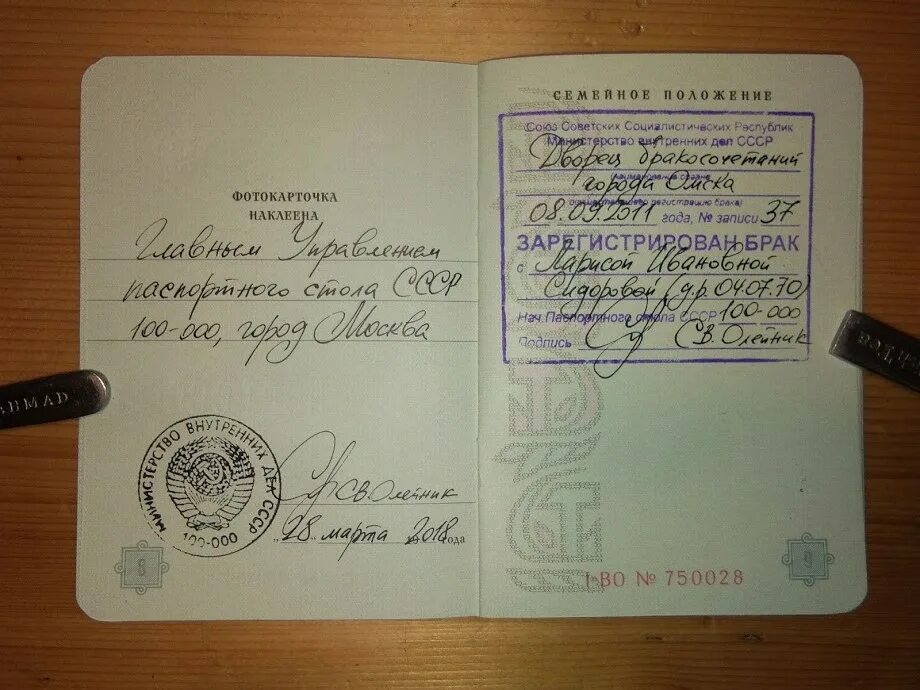 ФОТОКАРТОЧКА
НАКЛЕЕНА
Главным Управлением
паспортного стола СССР
100-000, город Москва
МИНИСТЕРСТВО ВНУТРЕННИХ ДЕЛ СССР
100-000
С.В. Олейник
"28" марта 2018 года
8
AHMAD
СЕМЕЙНОЕ ПОЛОЖЕНИЕ
Союз Советских Социалистических Республик
Министерство внутренних дел СССР
Дворец бракосочетаний
(наименование органа
города Омска
регистрацию брака)
08.09.2011 года, № записи 37
ЗАРЕГИСТРИРОВАН БРАК
с Ларисой Ивановной
Сидоровой (д.р. 04.07.70)
Нач. Паспортного стола СССР 100-000
Подпись С.В. Олейник
I-ВО № 750028
9